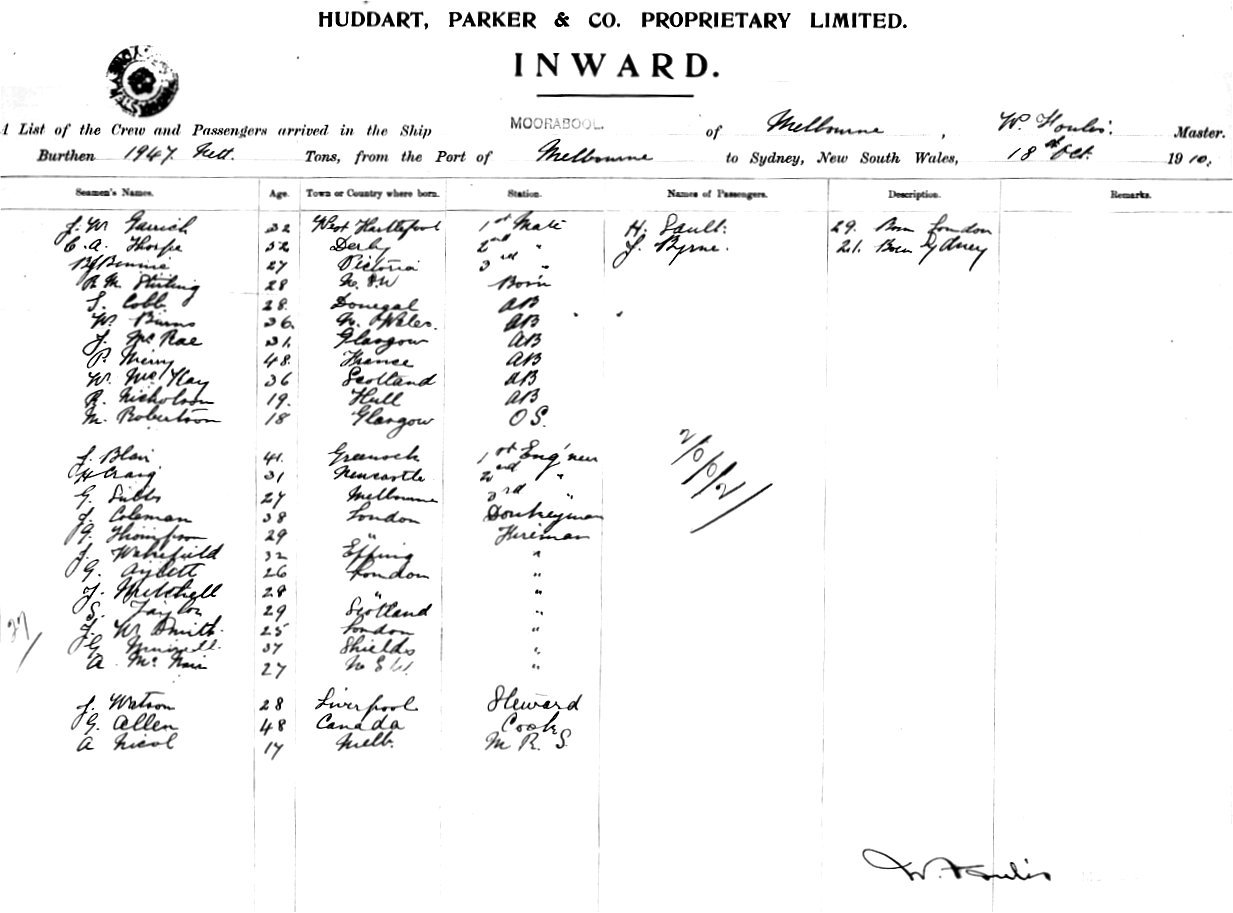 HUDDART, PARKER & CO. PROPRIETARY LIMITED.
INWARD.
A List of the Crew and Passengers arrived in the Ship MOORABOOL. of Melbourne, W. Foulis. Master.
Burthen 1947 Nett. Tons, from the Port of Melbourne to Sydney, New South Wales, 18th Oct. 1910.
Seamen's Names. Age. Town or Country where born. Station. Names of Passengers. Description. Remarks.
J. W. 32 West Hartlepool 1st Mate H. Sault. 29. Born London
C. A. Thorpe 32 Derby 2nd " J. Byrne. 21. Born Sydney
Binnie 27 Victoria 3rd "
R. M. Stirling 28 N.S.W Bosn
S. Cobb 28. Donegal AB
W. Burns 36. N. S Wales. AB
J. McRae 31. Glasgow AB
P. 48. France AB
W. McKay 36 Scotland AB
R. Nicholson 19. Hull AB
M. Robertson 18 Glasgow O S.
J. Blair 41. Greenock 1st Eng'neer
H Craig 31 Newcastle 2nd "
G. 27 Melbourne 3rd "
J. Coleman 38 London Donkeyman
G. Thompson 29 " Fireman
J. Wakefield 32 Epping "
G. Aylett 26 London "
J. Mitchell 28 " "
S. Taylor 29 Scotland "
J. W Smith. 25 London "
G. 37 Shields "
A. McNair 27 N S W. "
J. Watson 28 Liverpool Steward
G. Allen 48 Canada Cook
A Nicol 17 Melb. M R. S.
27/
W. Foulis